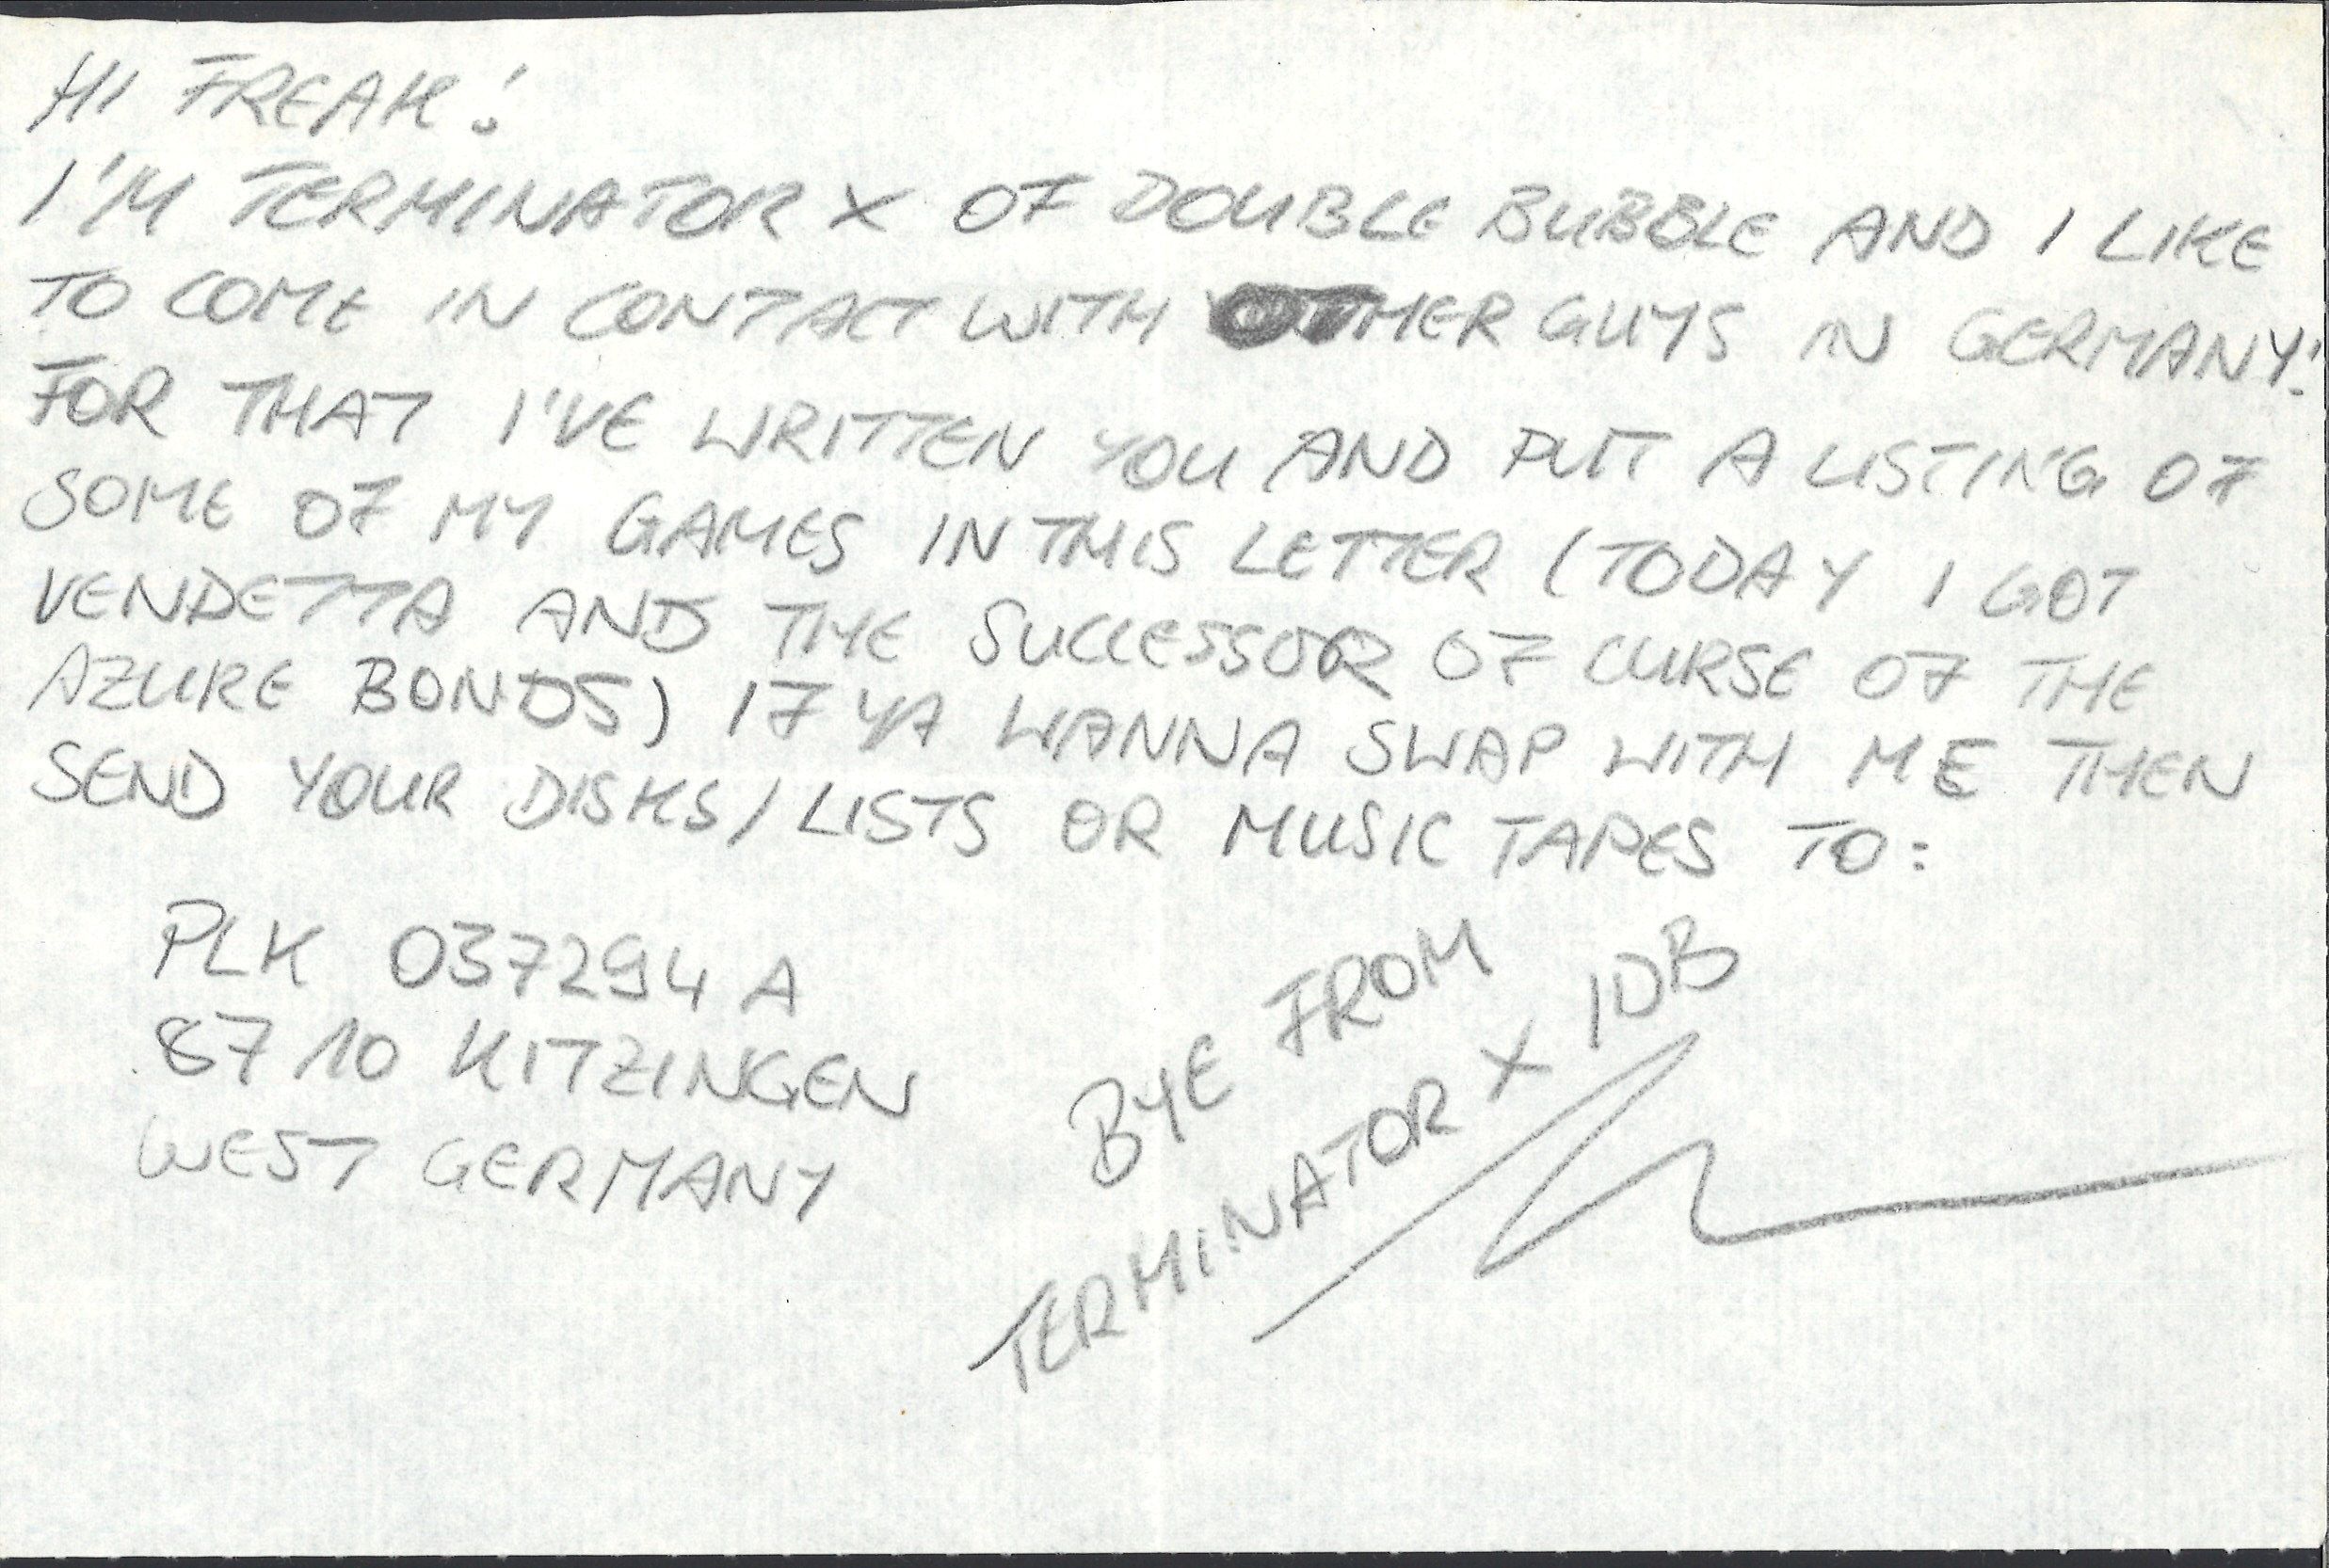 HI FREAK!
I'M TERMINATOR X OF DOUBLE BUBBLE AND I LIKE
TO COME IN CONTACT WITH OTHER GUYS IN GERMANY!
FOR THAT I'VE WRITTEN YOU AND PUT A LISTING OF
SOME OF MY GAMES IN THIS LETTER (TODAY I GOT
VENDETTA AND THE SUCCESSOR OF CURSE OF THE
AZURE BONDS) IF YA WANNA SWAP WITH ME THEN
SEND YOUR DISKS/LISTS OR MUSIC TAPES TO:
PLK 037294 A
8710 KITZINGEN
WEST GERMANY
BYE FROM
TERMINATOR X